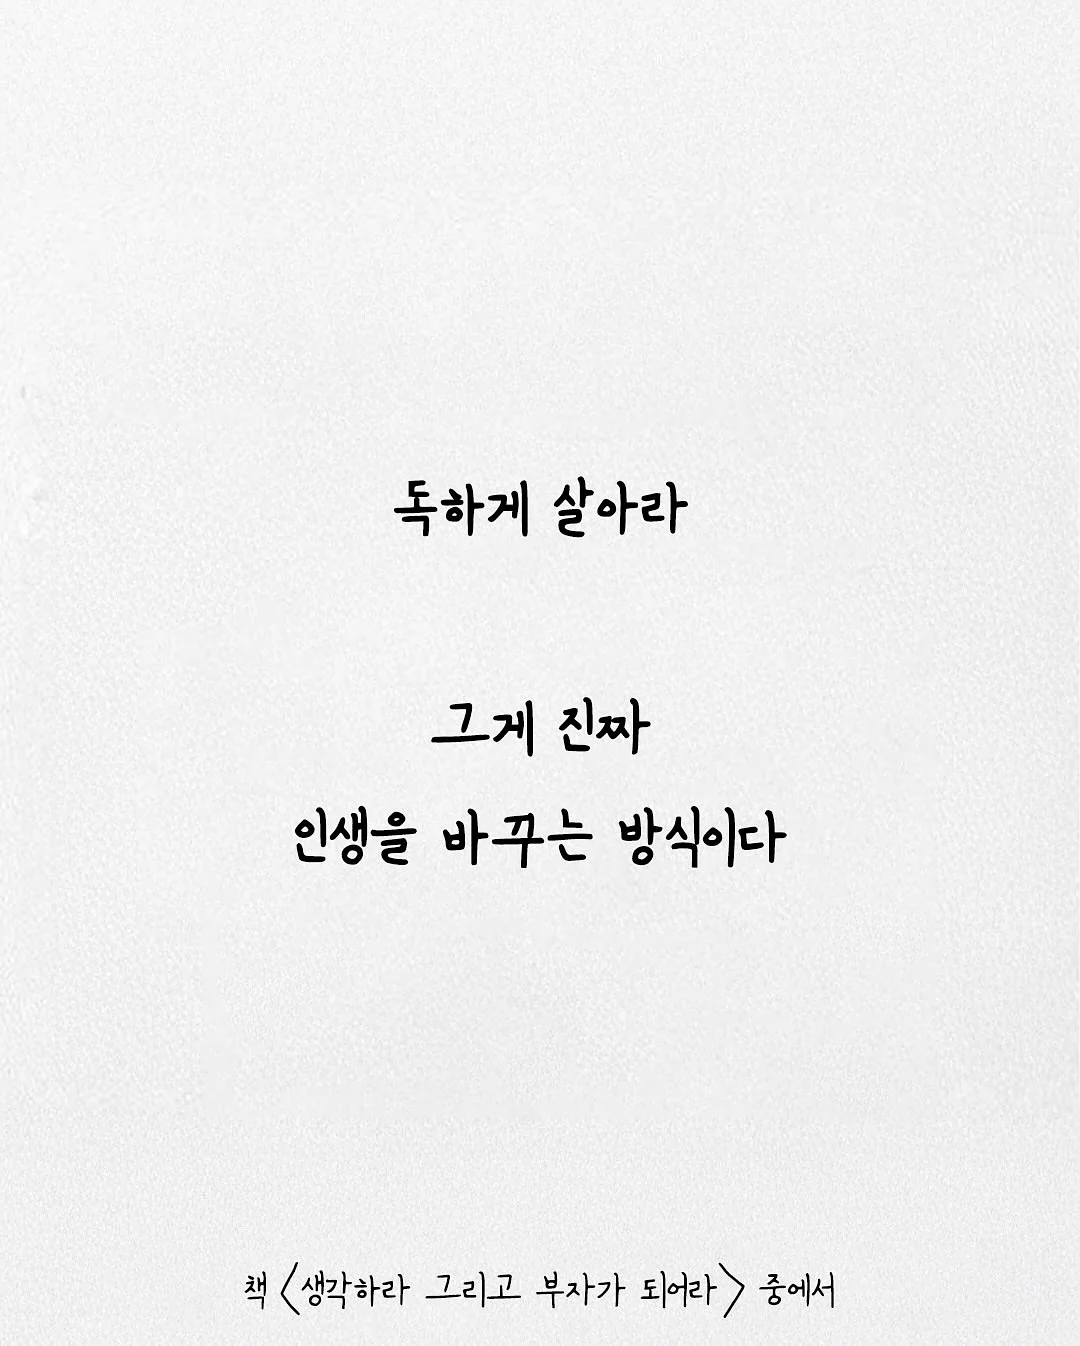 독하게 살아라
그게 진짜
인생을 바꾸는 방식이다
책 <생각하라 그리고 부자가 되어라> 중에서